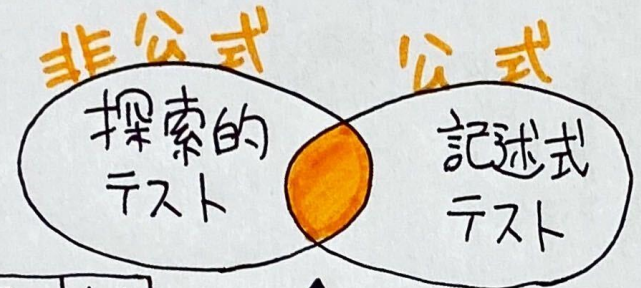 非公式
公式
探索的
テスト
記述式
テスト